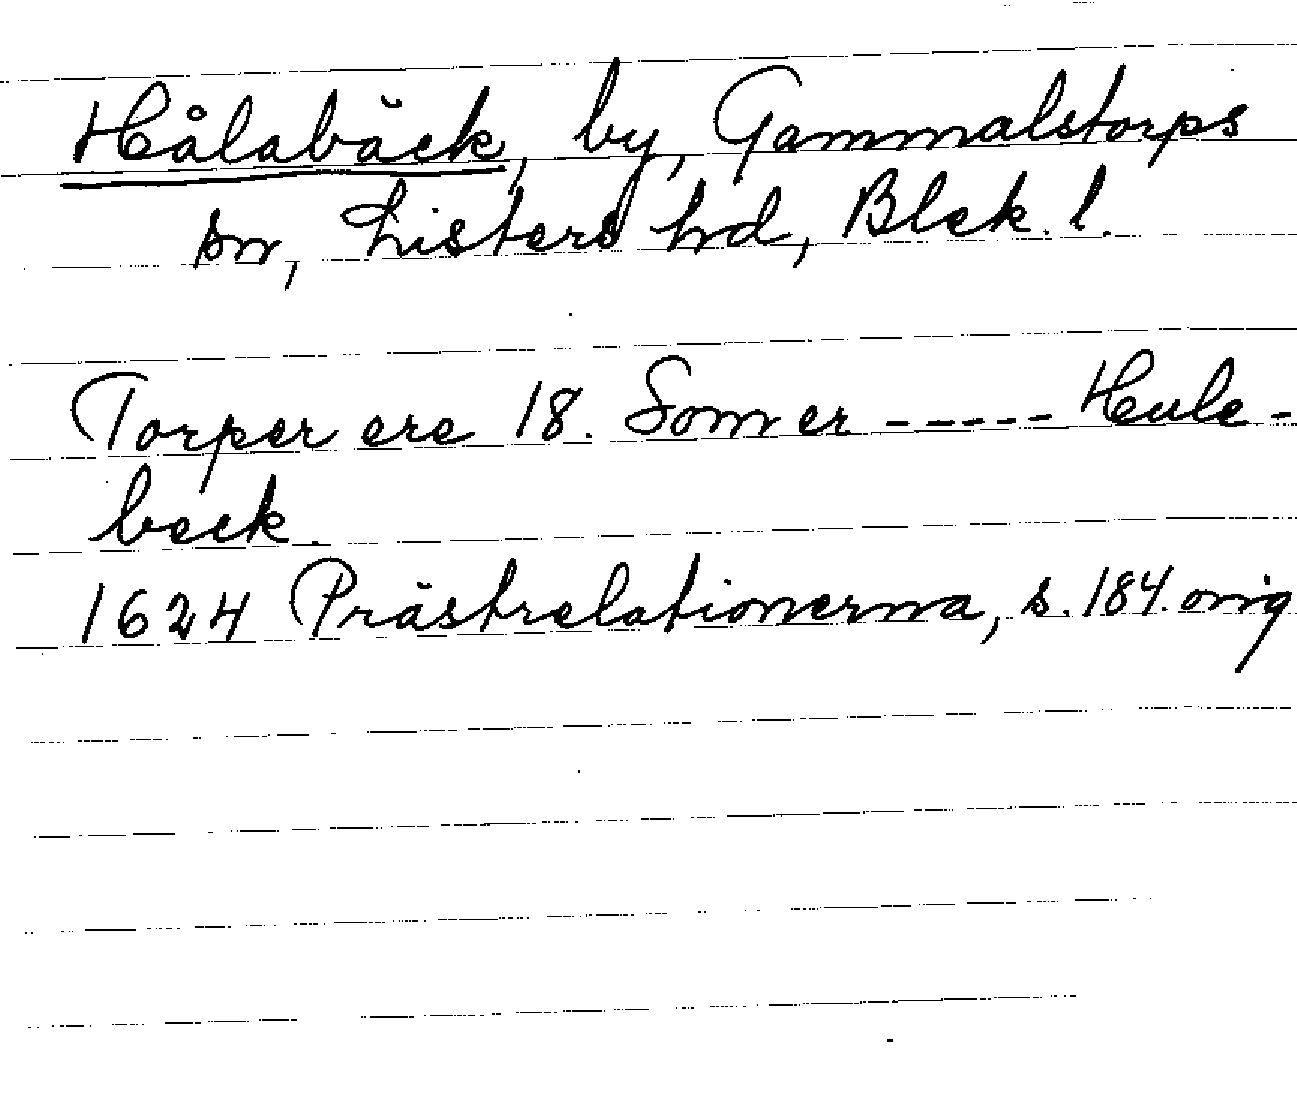 Hålabäck, by, Gammalstorps
sn, Listers hd, Blek. l.
Torper ere 18. Som er ----- Hule-
beck.
1624 Prästrelationerna, s. 184. orig